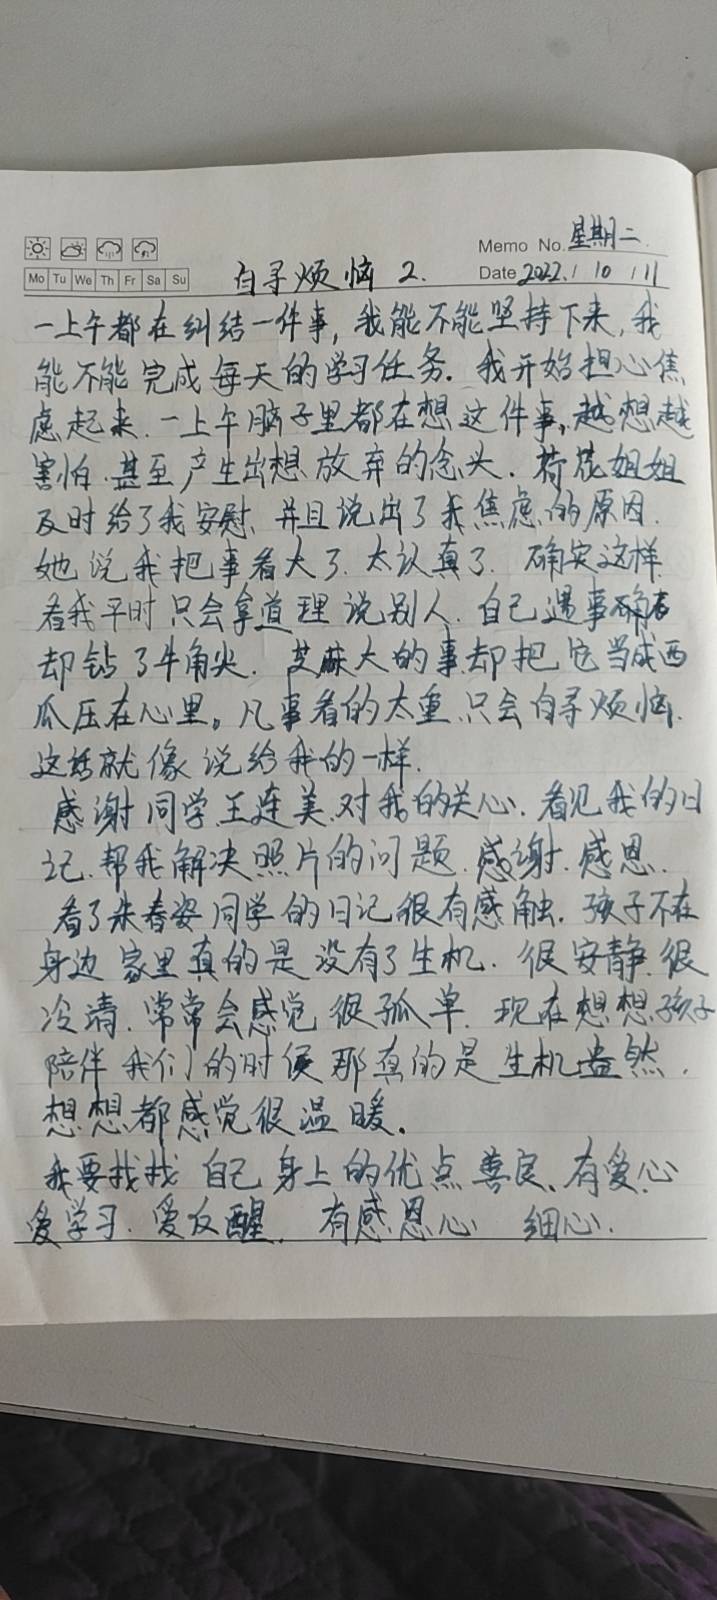 Memo No. 星期二.
Mo Tu We Th Fr Sa Su
自寻烦恼 2.
Date 2022. / 10 / 11
一上午都在纠结一件事，我能不能坚持下来，我
能不能完成每天的学习任务. 我开始担心焦
虑起来. 一上午脑子里都在想这件事，越想越
害怕. 甚至产生出想放弃的念头. 荷花姐姐
及时给了我安慰、并且说出了我焦虑的原因.
她说我把事看大了. 太认真了. 确实这样.
看我平时只会拿道理说别人. 自己遇事
却钻了牛角尖. 芝麻大的事却把它当成西
瓜压在心里。凡事看的太重.只会自寻烦恼.
这话就像说给我的一样.
感谢同学王连美.对我的关心. 看见我的日
记.帮我解决照片的问题.感谢.感恩.
看了朱春姿同学的日记很有感触. 孩子不在
身边家里真的是没有了生机. 很安静.很
冷清. 常常会感觉很孤单. 现在想想孩子
陪伴我们的时候那真的是生机盎然.
想想都感觉很温暖.
我要找找自己身上的优点善良、有爱心
爱学习. 爱反醒. 有感恩心 细心.